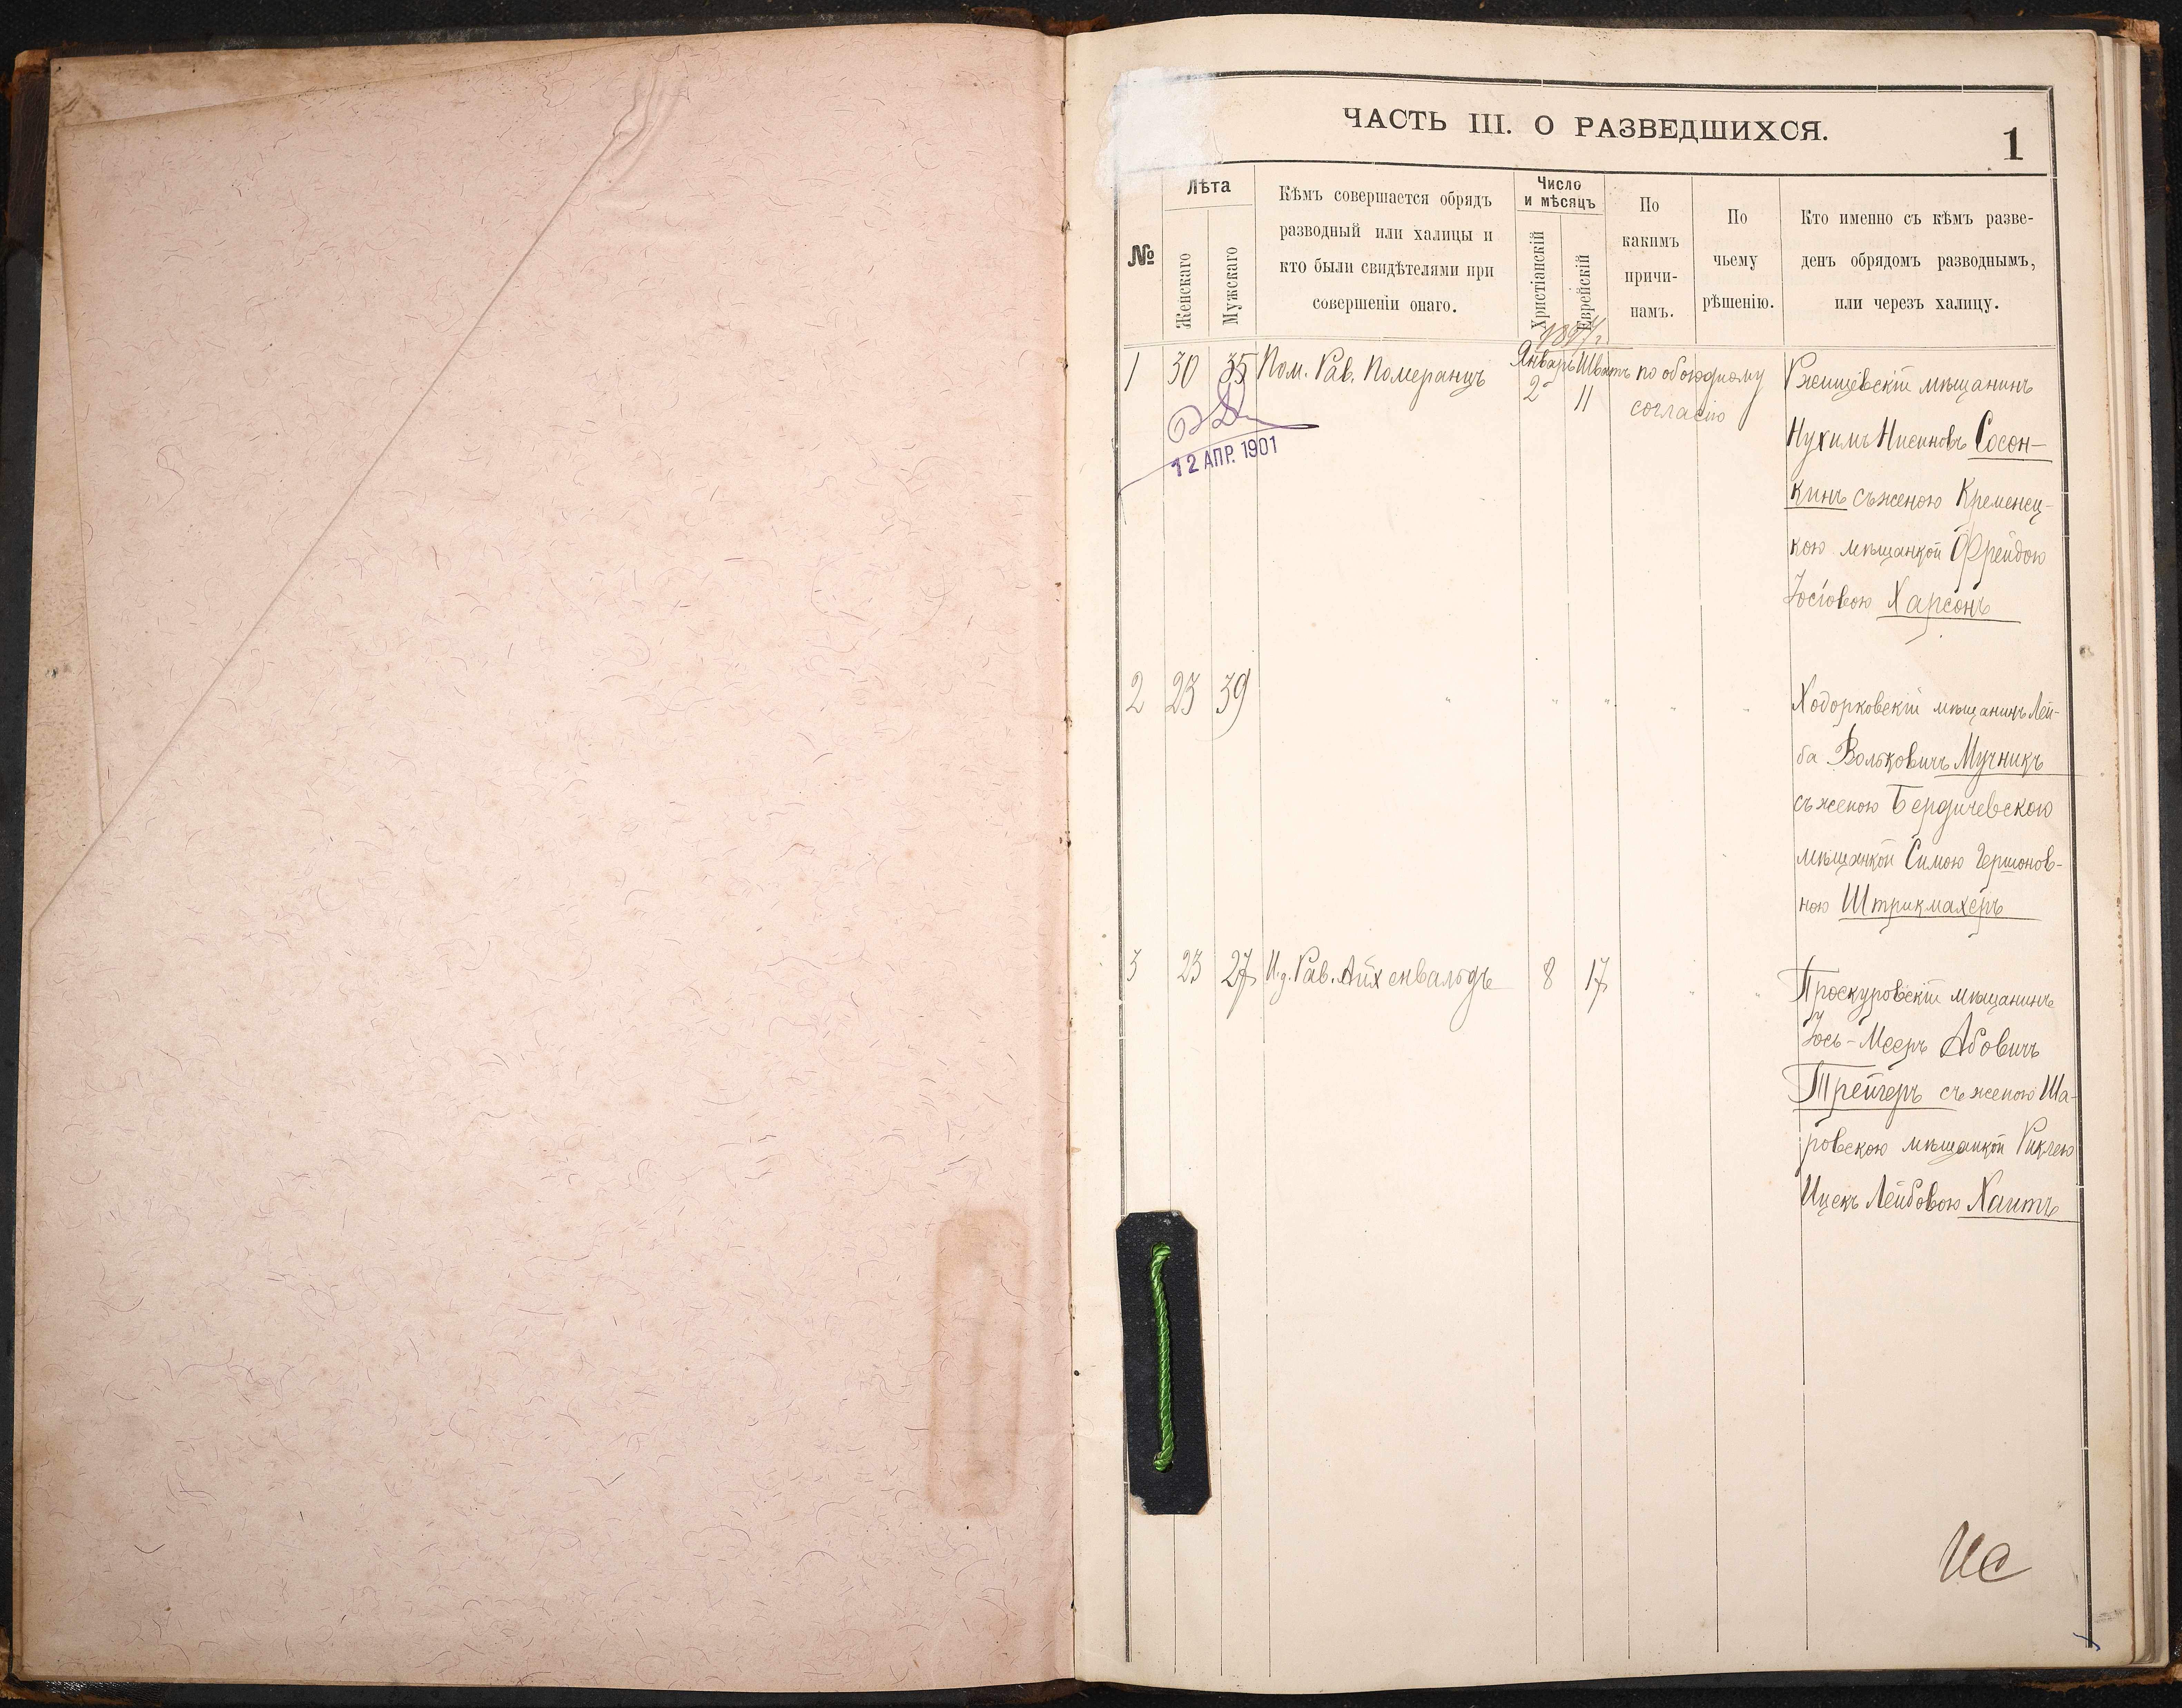 ЧАСТЬ III. О РАЗВЕДШИХСЯ.
1
№
Лѣта
Женскаго
Мужскаго
Кѣмъ совершается обрядъ
разводный или халицы и
кто были свидѣтелями при
совершеніи онаго.
Число
и мѣсяцъ
Христіанскій
Еврейскій
По
какимъ
причи-
намъ.
По
чьему
рѣшенію.
Кто именно съ кѣмъ разве-
денъ обрядомъ разводнымъ,
или черезъ халицу.
1897 г.
1 30 35 Пом. Рав. Померанцъ Январь Шватъ по обоюдному Ржищевскій мѣщанинъ
2 11 согласію
12 АПР. 1901
Нухимъ Нисиновъ Сосон-
кинъ съ женою Кременец-
кою мѣщанкой Фрейдою
Іосіовою Харсонъ
2 23 39 " " " " " Ходорковскій мѣщанинъ Лей-
ба Вольковичъ Мучникъ
съ женою Бердичевскою
мѣщанкой Симою Гершонов-
ною Штрикмахеръ
3 23 27 И. д. Рав. Айхенвальдъ 8 17 " " Проскуровскій мѣщанинъ
Іось-Мееръ Абовичъ
Трейгеръ съ женою Ша-
ровскою мѣщанкой Риклею
Ицекъ Лейбовою Хаитъ
ИС